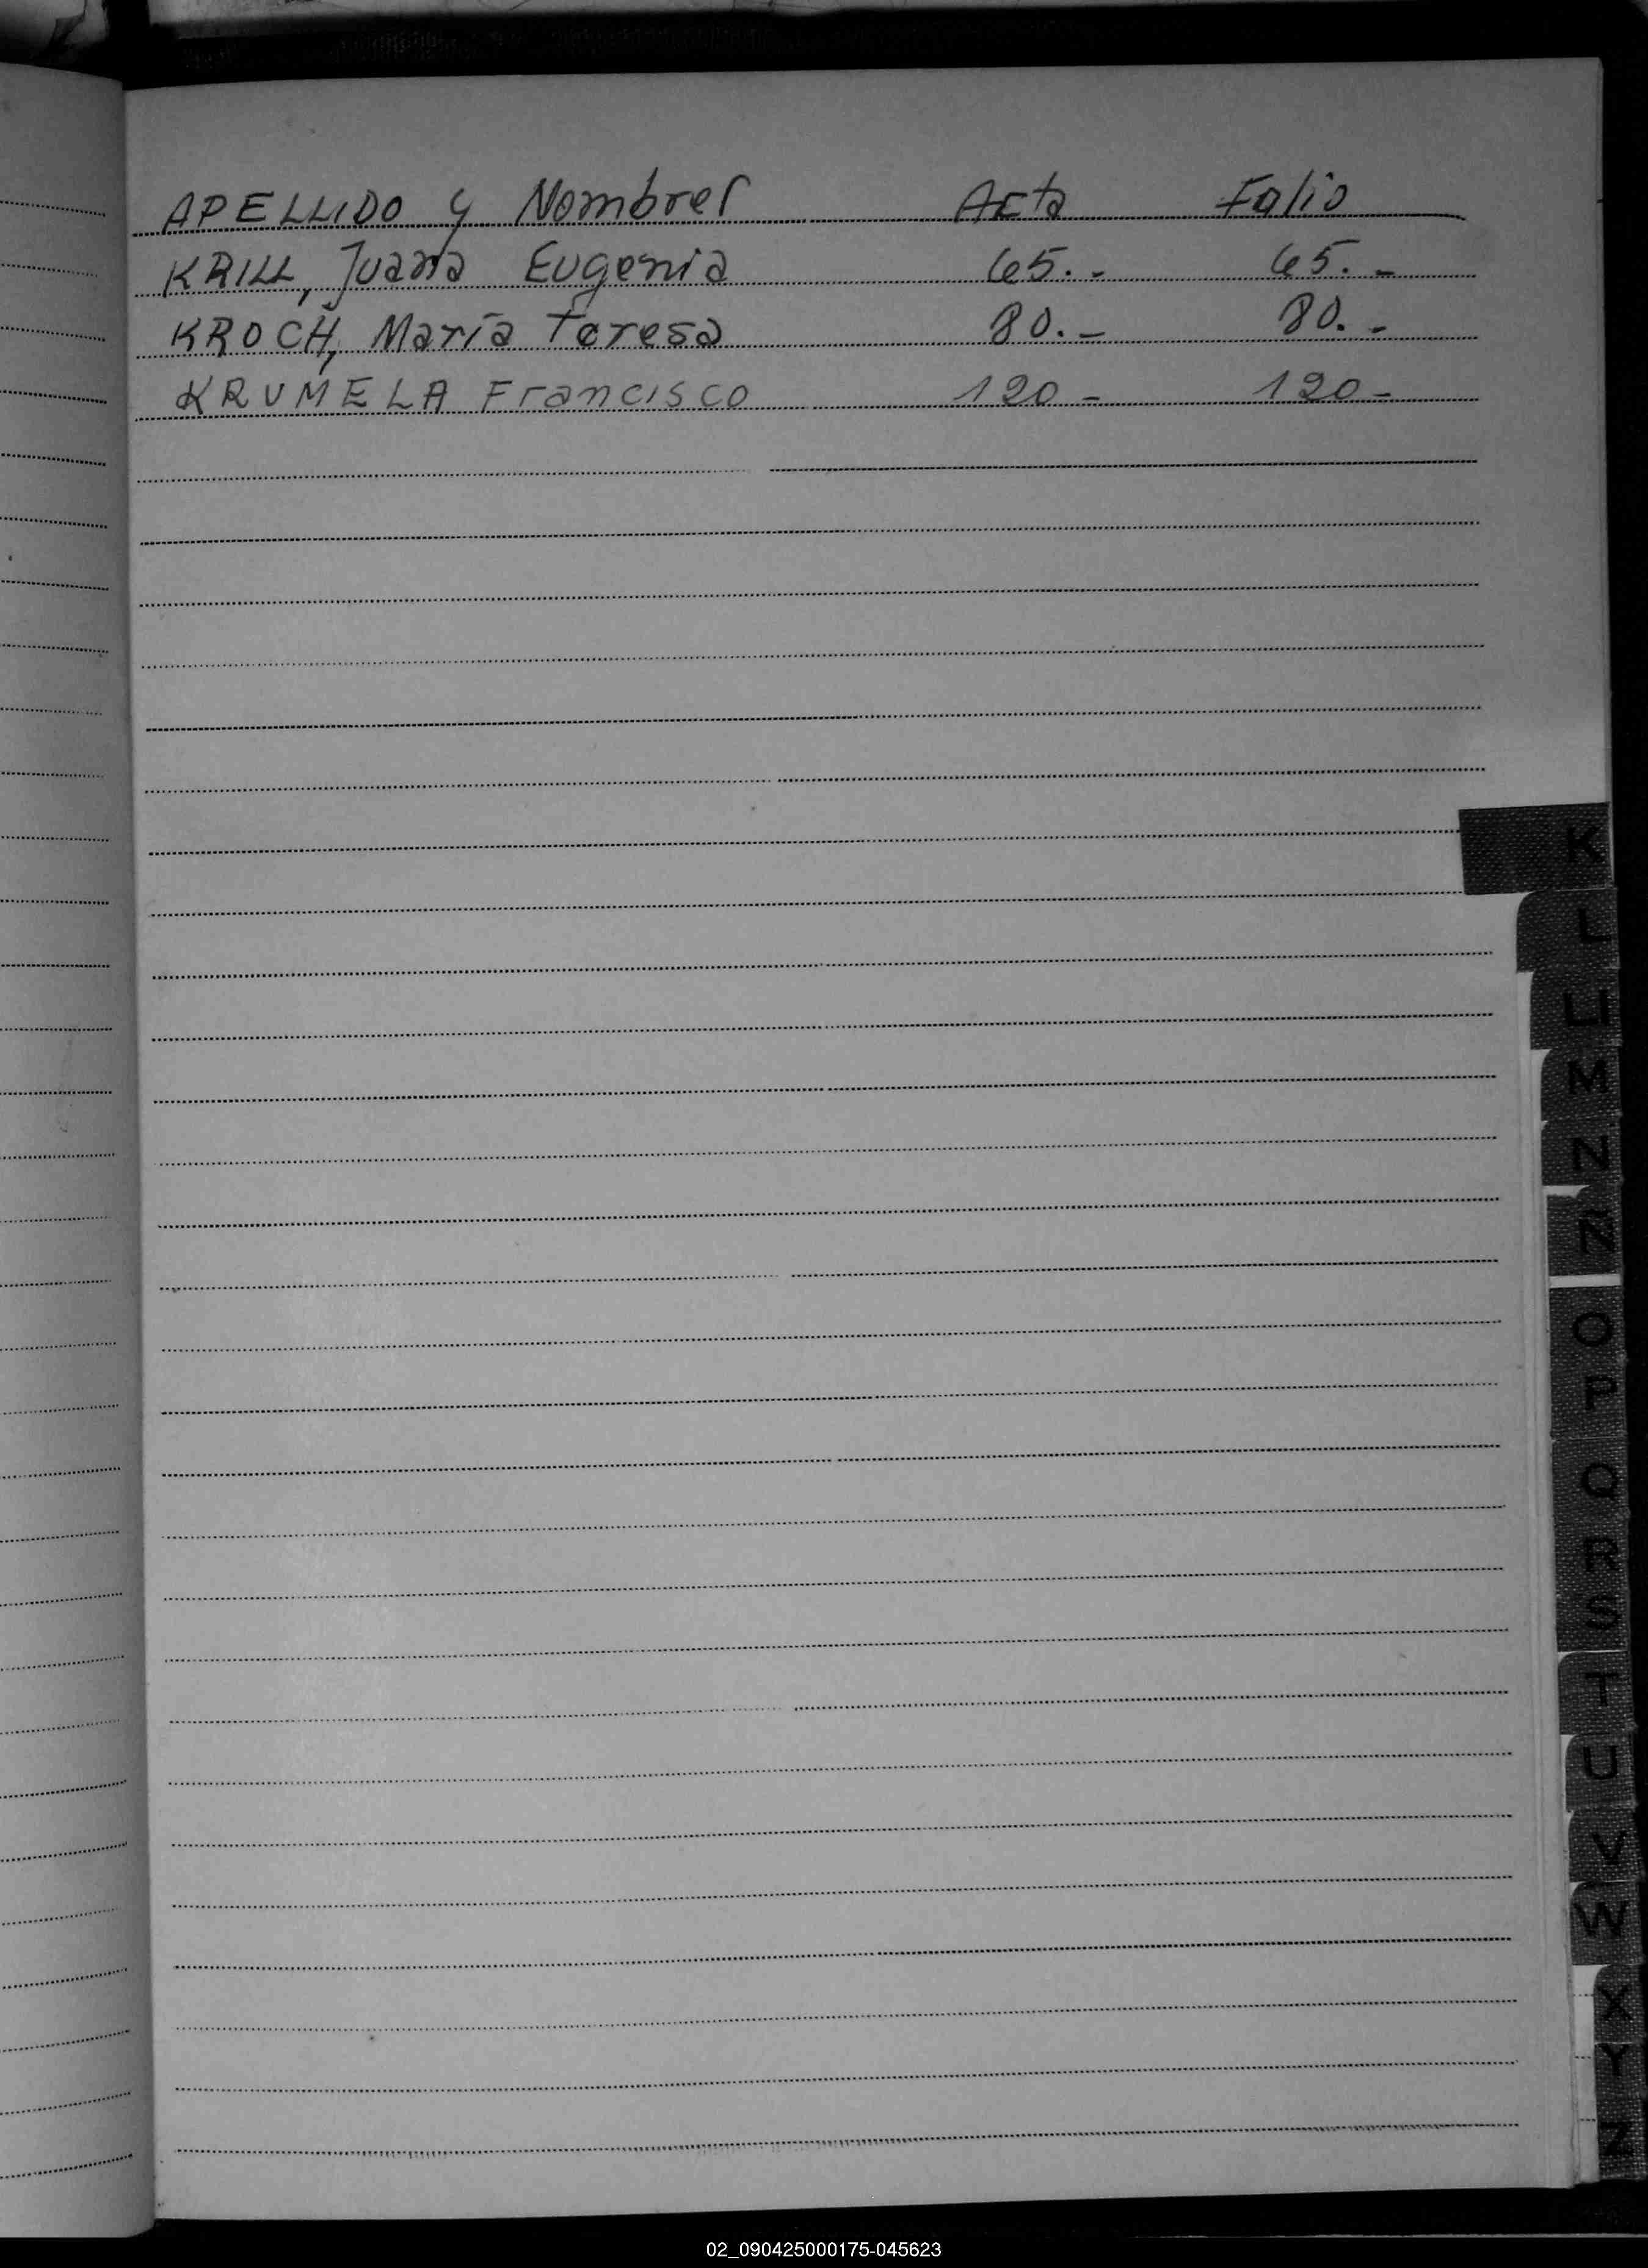 APELLIDO y Nombres Acta Folio
KRILL, Juana Eugenia 65.- 65.-
KROCH, María Teresa 80.- 80.-
KRUMELA Francisco 120- 120-
K
L
LL
M
N
Ñ
O
P
Q
R
S
T
U
V
W
X
Y
Z
02_090425000175-045623